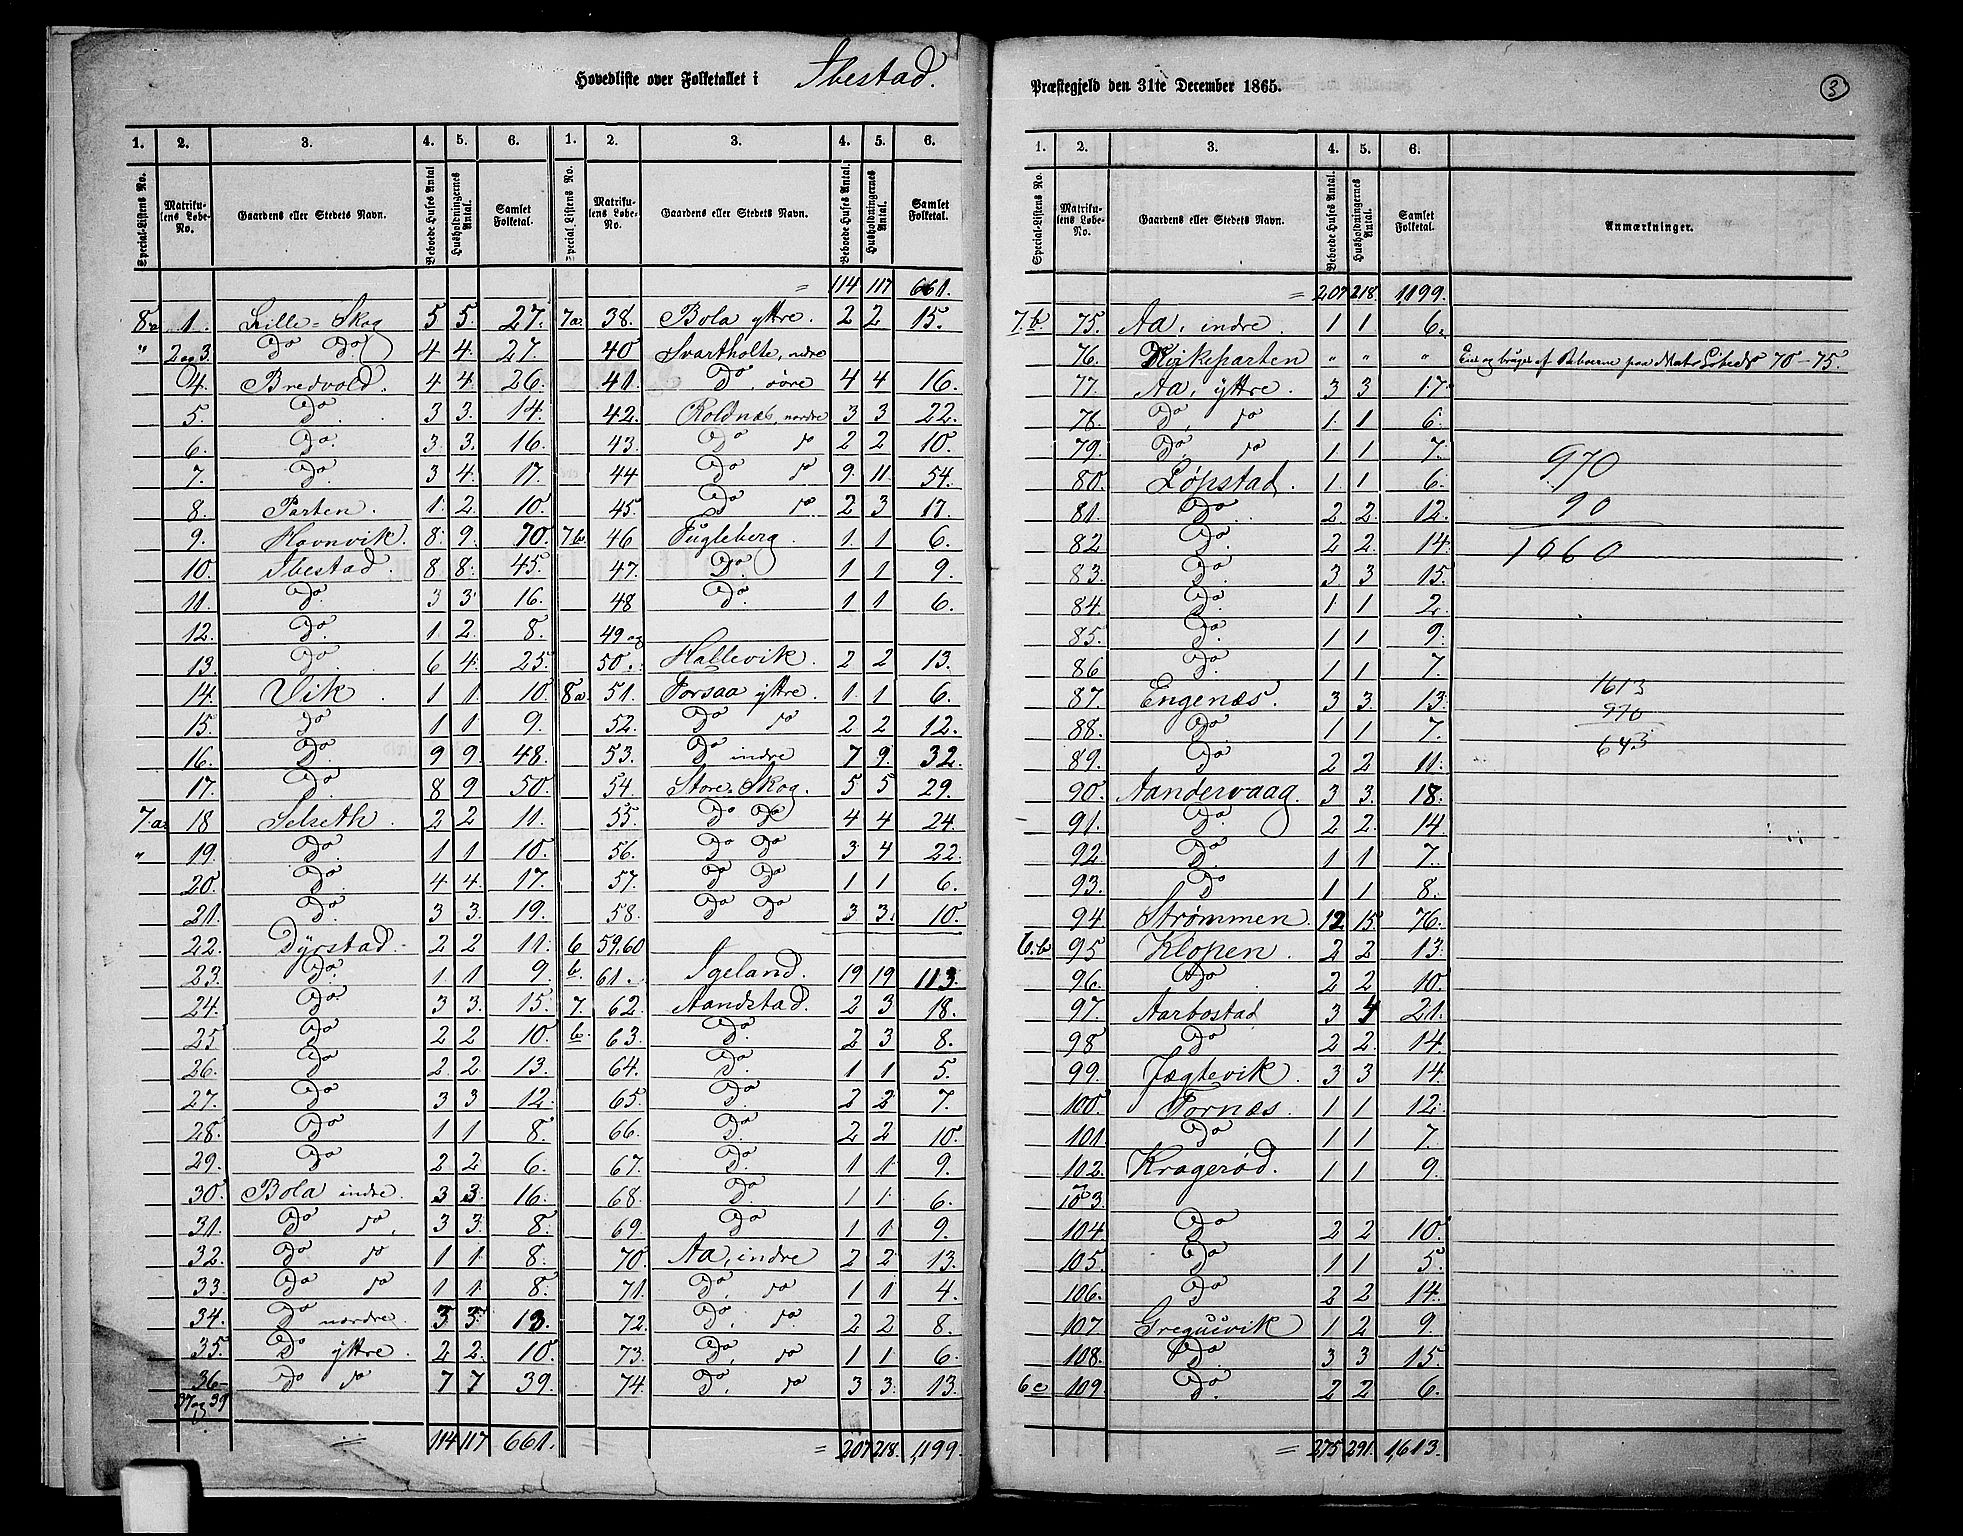 Hovedliste over Folketallet i Ibestad. Præstegjeld den 31te December 1865. 3
1. 2. 3. 4. 5. 6. 1. 2. 3. 4. 5. 6.
Special-Listens No. Matrikulens Løbe-No. Gaardens eller Stedets Navn. Beboede Huses Antal. Husholdningernes Antal. Samlet Folketal. Special Listens No. Matrikulens Løbe-No. Gaardens eller Stedets Navn. Beboede Huses Antal. Husholdningernes Antal. Samlet Folketal.
= 114 117 661.
8a 1. Lille=Skog 5 5. 27. 7a. 38. Bola yttre. 2 2 15.
" 2 og 3. Do Do 4 4. 27. 40 Svartholte, ndre
4. Bredvold. 4 4. 26. 41. Do, søre 4 4 16.
5. Do. 3 3. 14. 42. Roldnæs, nordre 3 3 22.
6. Do. 3 3. 16. 43. Do do 2 2 10.
7. Do. 3 4. 17. 44 Do do 9 11. 54.
8. Parten. 1. 2. 10. 45. Do do. 2 3 17.
9. Havnvik. 8. 9. 70. 7b. 46 Fugleberg. 1. 1 6.
10. Ibestad. 8 8. 45. 47. Do. 1 1 9.
11. Do. 3 3. 16. 48 Do. 1 1. 6.
12. Do. 1 2. 8. 49 og
13. Do. 6 4. 25. 50. Hallevik. 2 2 13.
14. Vik. 1 1. 10. 8a. 51. Forsaa yttre. 1. 1 6.
15. Do 1 1 9. 52. Do do 2 2 12.
16. Do. 9 9. 48. 53. Do indre 7 9. 32.
17. Do. 8 9 50. 54. Store=Skog. 5 5 29.
7.a. 18 Selseth. 2 2 11. 55. Do Do 4 4 24.
" 19. Do. 1 1 10. 56. Do Do 3 4 22.
20. Do. 4 4. 17. 57. Do Do 1 1 6.
21. Do. 3 3. 19. 58. Do Do 3 3. 10.
22. Dyrstad. 2 2 11. 6 59.60
23. Do. 1 1 9. b. 61. Igeland. 19 19 113.
24. Do 3 3. 15. 7. 62. Aandstad. 2 3 18.
25 Do 2 2 10. b. 63. Do. 2 3 8.
26. Do 2 2. 13. 64. Do. 1 1 5.
27. Do 3 3 12. 65. Do. 2 2 7.
28. Do 1 1 8. 66. Do. 2 2 10.
29. Do 2 2 6. 67. Do. 1 1. 9.
30. Bola indre. 3 3. 16. 68. Do. 1 1. 6.
31. Do do, 3 3. 8. 69. Do 1 1 9.
32. Do do 1 1. 8. 70. Aa, indre 2 2 13.
33. Do do 1 1. 8. 71. Do, do 1 1 4.
34. Do nordre. 3 3. 13. 72. Do, do. 2 2 8.
35. Do yttre. 2 2. 10. 73. Do, do 1 1 6.
36- Do do 7 7 39. 74. Do, do 3 3. 13.
37 og 39
= 114 117 661. = 207 218. 1,199.
1. 2. 3. 4. 5. 6.
Special-Listens No. Matrikulens Løbe-No. Gaardens eller Stedets Navn. Beboede Huses Antal. Husholdningernes Antal. Samlet Folketal. Anmærkninger.
= 207 218. 1,199.
7.b. 75. Aa, indre. 1 1 6.
76. Kirkeparten " " " 70-75.
77. Aa, yttre. 3 3. 17.
78. Do, do 1 1 6.
79. Do, do 1 1 7. 970
80. Løpstad. 1 1 6.
81. Do. 2 2. 12. 90
82 Do. 2 2. 14. 1060
83. Do. 3 3 15.
84. Do. 1 1 2.
85. Do. 1 1 9.
86 Do. 1 1 7.
87. Engenæs. 3 3. 13. 1613
88. Do. 1 1 7. 970
89. Do 2 2 11. 643
90. Aandervaag. 3 3. 18.
91. Do. 2 2. 14
92 Do 1 1 7.
93. Do 1 1 8.
94 Strømmen. 12 15. 76.
6.b 95 Klopen. 2 2 13.
96. Do 2 2 10.
97. Aarbostad 3 4 21.
98 Do 2 2. 14.
99. Jægtevik. 3 3 14.
100. Fornæs. 1 1 12.
101. Do 1 1 7.
102. Kragerød. 1 1 9.
103.
104 Do 2 2 10.
105. Do 1 1 5.
106. Do 2 2 14.
107. Greguisvik 1 2 9.
108. Do. 3 3 15.
6c 109. Do. 2 2 6.
= 275 291. 1,613.